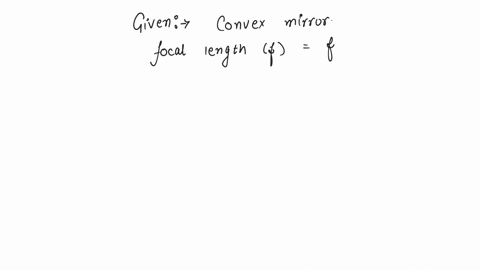 Given:→ Convex mirror.
focal length (f) = f